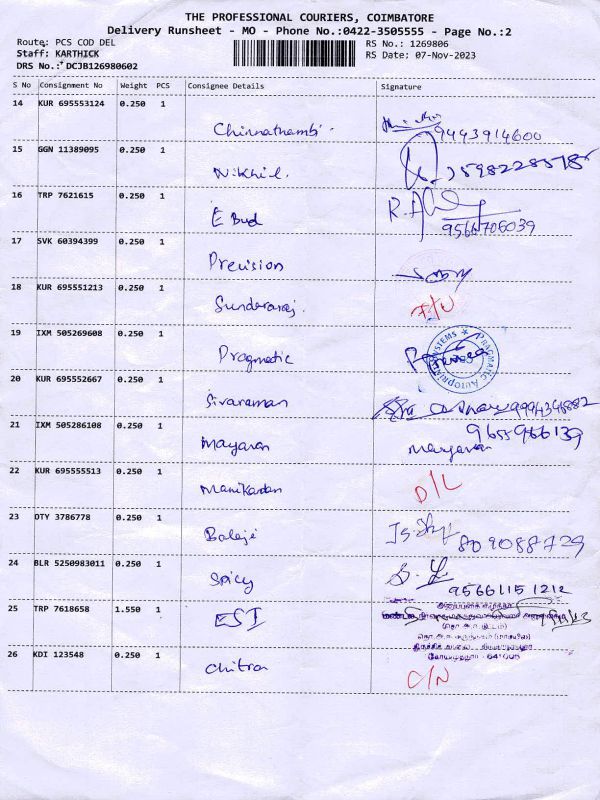 THE PROFESSIONAL COURIERS, COIMBATORE
Delivery Runsheet - MO - Phone No.:0422-3505555 - Page No.:2
Route: PCS COD DEL
RS No.: 1269806
Staff: KARTHICK
RS Date: 07-Nov-2023
DRS No.: DCJB126980602
S No Consignment No Weight PCS Consignee Details Signature
14 KUR 695553124 0.250 1
Chinnathambi 9443914600
15 GGN 11389095 0.250 1
Nikhil
16 TRP 7621615 0.250 1
E Bud 9566706039
17 SVK 60394399 0.250 1
Precision
18 KUR 695551213 0.250 1
Sundararaj
19 IXM 505269608 0.250 1
Pragmatic
20 KUR 695552667 0.250 1
Sivaraman
21 IXM 505286108 0.250 1 9655966139
Mayavan
22 KUR 695555513 0.250 1
Manikandan D/L
23 OTY 3786778 0.250 1
Balaji 809088729
24 BLR 5250983011 0.250 1
Spicy 95661151212
25 TRP 7618658 1.550 1
ESI
26 KDI 123548 0.250 1
Chitra C/N